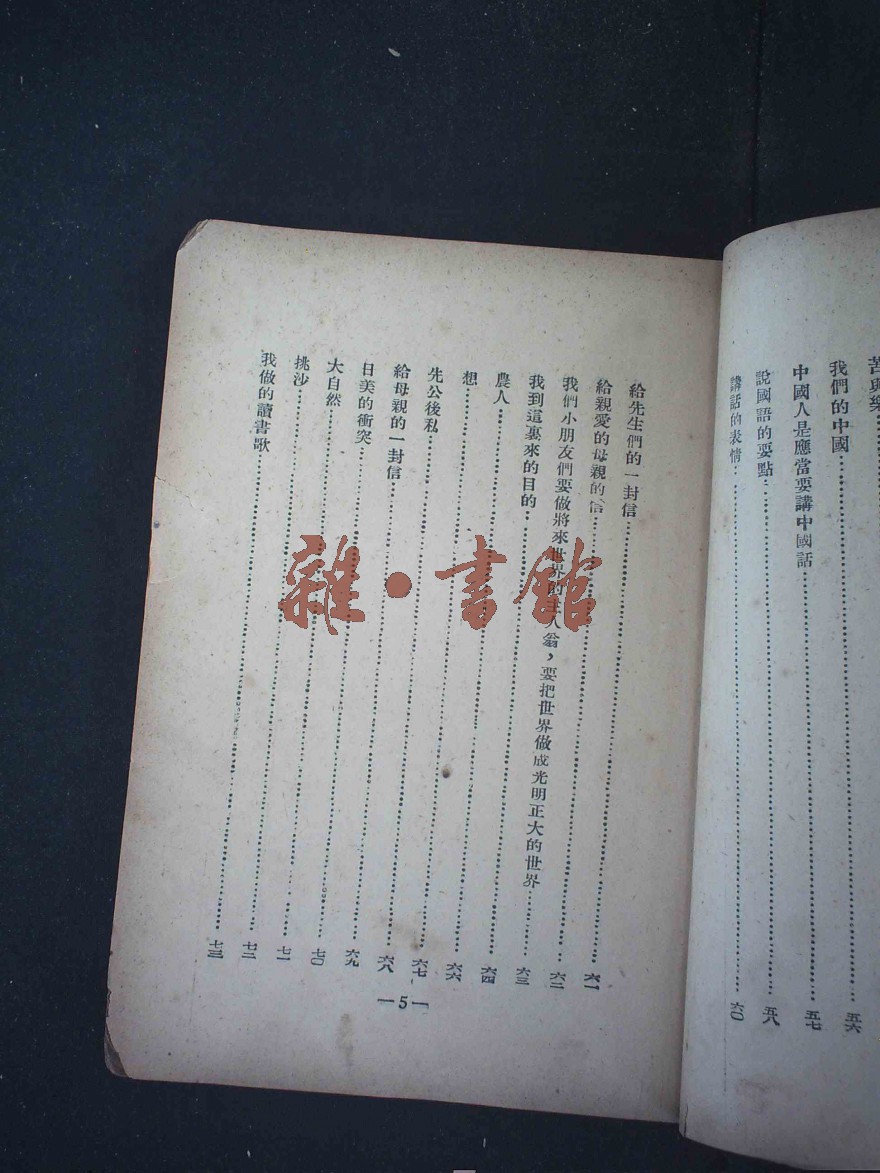 苦與樂
我們的中國……五六
中國人是應當要講中國話……五七
說國語的要點……五八
講話的表情……六〇
給先生們的一封信……六一
給親愛的母親的信……六二
我們小朋友們要做將來世界的主人翁，要把世界做成光明正大的世界……六三
我到這裏來的目的……六四
農人……六六
想……六七
先公後私……六八
給母親的一封信……六九
日美的衝突……七〇
大自然……七一
挑沙……七二
我做的讀書歌……七三
—5—
雜·書館